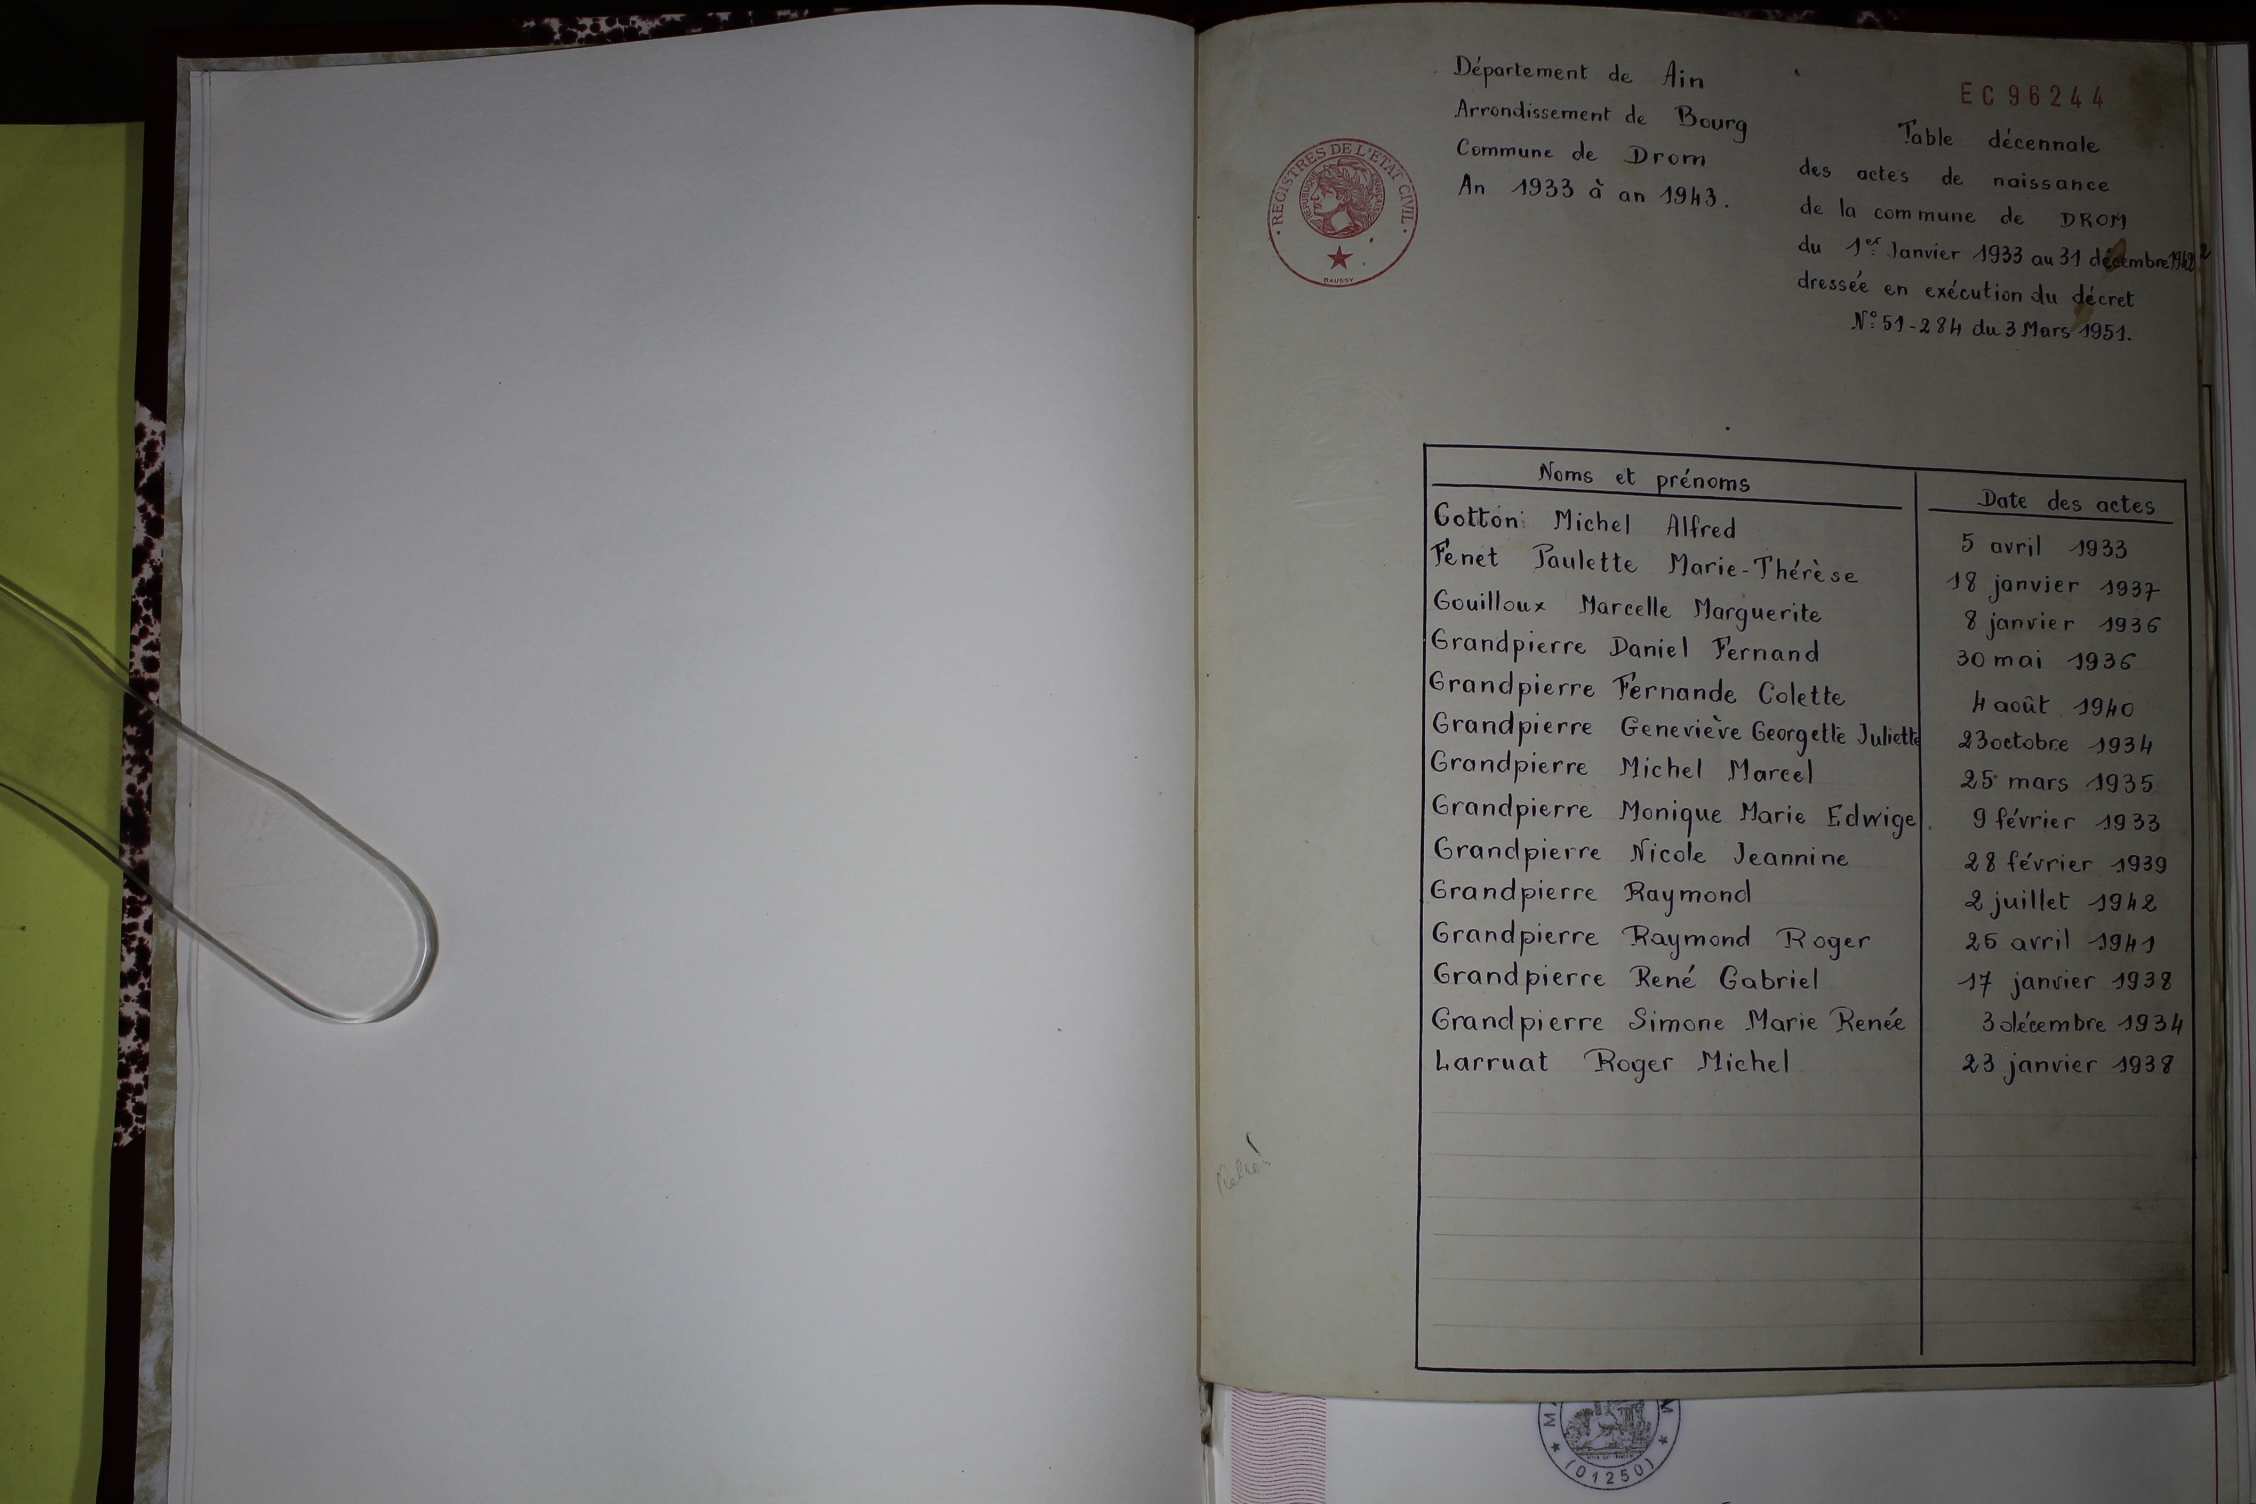 Département de Ain
Arrondissement de Bourg
Commune de Drom
An 1933 à an 1943.
EC96244
Table décennale
des actes de naissance
de la commune de DROM
du 1er Janvier 1933 au 31 décembre 1942
dressée en exécution du décret
N° 51-284 du 3 Mars 1951.
REGISTRES DE L'ETAT CIVIL
DAUSSY
Noms et prénoms Date des actes
Cotton Michel Alfred 5 avril 1933
Fenet Paulette Marie-Thérèse 18 janvier 1937
Gouilloux Marcelle Marguerite 8 janvier 1936
Grandpierre Daniel Fernand 30 mai 1936
Grandpierre Fernande Colette 4 août 1940
Grandpierre Geneviève Georgette Juliette 23 octobre 1934
Grandpierre Michel Marcel 25 mars 1935
Grandpierre Monique Marie Edwige 9 février 1933
Grandpierre Nicole Jeannine 28 février 1939
Grandpierre Raymond 2 juillet 1942
Grandpierre Raymond Roger 25 avril 1941
Grandpierre René Gabriel 17 janvier 1938
Grandpierre Simone Marie Renée 3 décembre 1934
Larruat Roger Michel 23 janvier 1938
(01250)